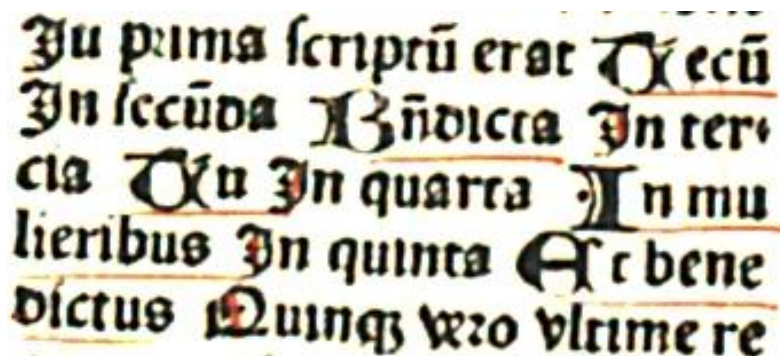 In prima scriptū erat Tecū
In secūda Bn̄dicta In ter⸗
cia Tu In quarta In mu
lieribus In quinta Et bene
dictus Quinqꝫ vero vltime re